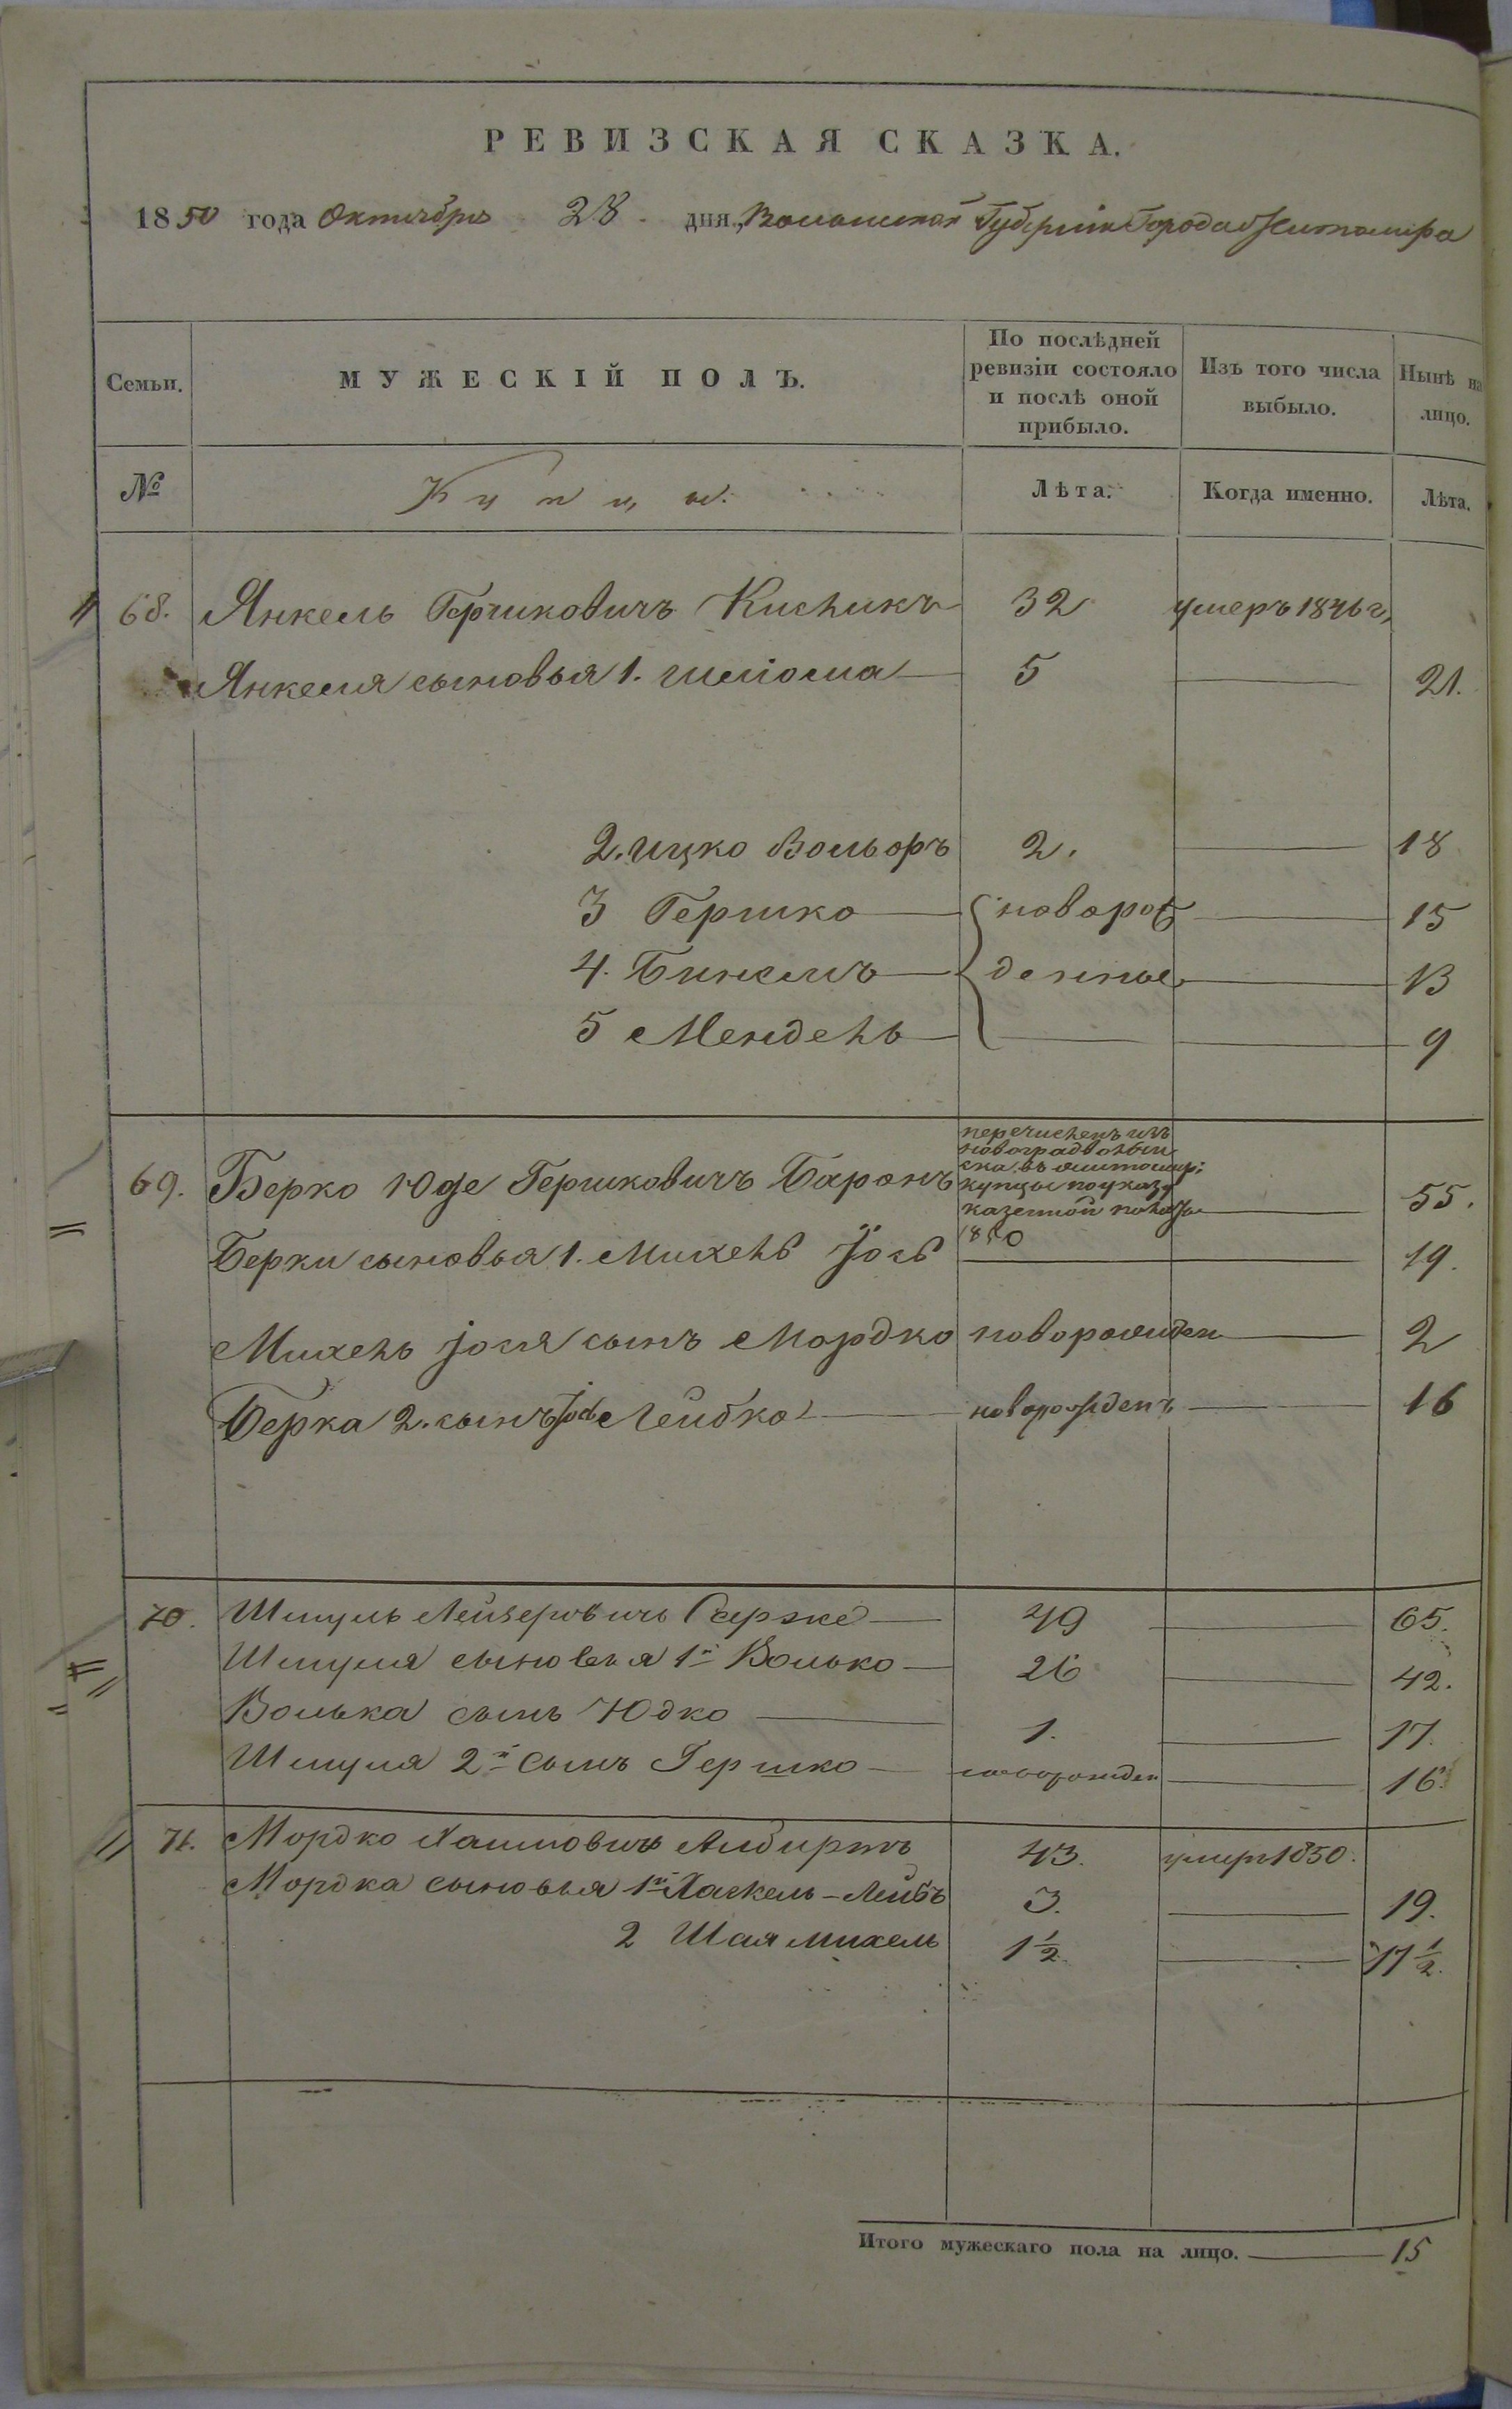 РЕВИЗСКАЯ СКАЗКА.
1850 года Октября 28 дня, Волынской Губерніи Города Житомира
Семьи. МУЖЕСКІЙ ПОЛЪ. По послѣдней ревизіи состояло и послѣ оной прибыло. Изъ того числа выбыло. Нынѣ на лицо.
№ Купцы. Лѣта. Когда именно. Лѣта.
68. Янкель Гершковичъ Кисликъ 32 умеръ 1846 г,
Янкеля сыновья 1. Шліома 5 21.
2. Ицко Вольоръ 2. 18
3 Гершко новорож 15
4. Бинемъ денные 13
5 Мендель 9
перечисленъ изъ
новоградволын
ска въ житомир:
69. Берко Юде Гершковичъ Баронъ купцы по указу
казенной палаты 55.
1850
Берки сыновья 1. Михель Jось 19.
Михель Jося сынъ Мордко новорожден 2
Берка 2. сынъ Jось Лейбко новорожденъ 16
70. Шмуль Лейзеровичъ 49 65.
Шмуля сыновья 1й Волько 26 42.
Волька сынъ Юдко 1. 17.
Шмуля 2й сынъ Гершко новорожден 16.
71. Мордко Хаимовичъ 43. умеръ 1850.
Мордка сыновья 1й Хаскель-Лейбъ 3. 19.
2 Шая Михель 1½ 17½.
Итого мужескаго пола на лицо. 15